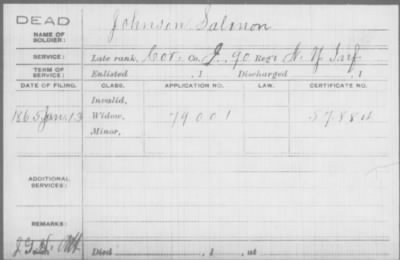 DEAD
NAME OF SOLDIER: Johnson Salomon
SERVICE: Late rank, Cor. Co. I. 90 Reg't N. Y. Inf.
TERM OF SERVICE: Enlisted , 1 Discharged , 1
DATE OF FILING. CLASS. APPLICATION NO. LAW. CERTIFICATE NO.
Invalid,
1865 Jan. 13 Widow, 79001
Minor,
ADDITIONAL SERVICES:
REMARKS:
Died , 1 , at